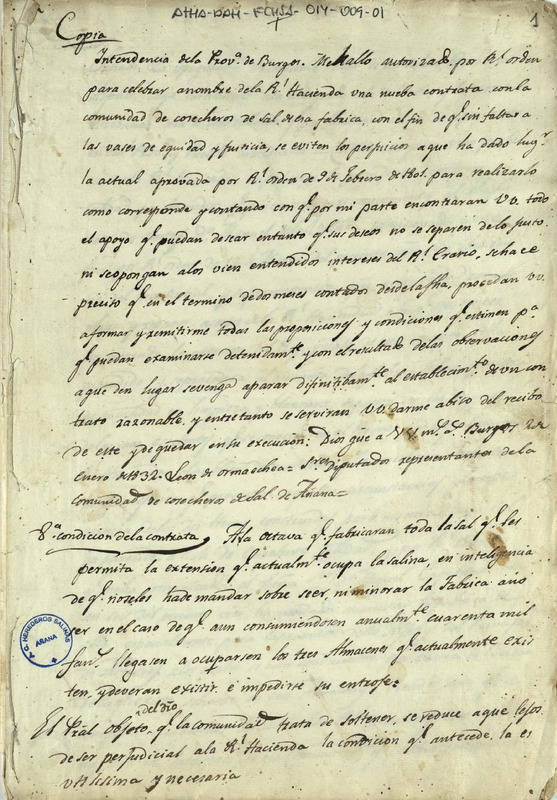 ATHA-DAH-FCHSA-014-009-01
1
Copia
Intendencia de la Prov.ª de Burgos. Me hallo autorizado por R.l orden
para celebrar a nombre de la R.l Hacienda una nueba contrata con la
comunidad de cosecheros de sal de esa fabrica, con el fin de q.e sin faltar a
las vases de equidad y justicia, se eviten los perjuicios a que ha dado lug.r
la actual aprovada por R.l orden de 9 de Febrero de 1801. para realizarlo
como corresponde y contando con q.e por mi parte encontraran VV. todo
el apoyo q.e puedan desear entanto q.e sus deseos no se separen de lo justo
ni se opongan alos vien entendidos intereses del R.l Erario, se hace
preciso q.e en el termino de dos meses contados desde la fha, procedan VV.
a formar y remitirme todas las proposiciones y condiciones q.e estimen p.ª
q.e puedan examinarse detenidam.te y con el resultado delas observaciones
a que den lugar se venga aparar difinitibam.te al establecim.to de un con
trato razonable, y entretanto se serviran VV darme abiso del recibo
de este y de quedar en su ejecucion: Dios gue a VV m.s a.s Burgos 2 de
Enero de 1832. Leon de ormaechea= S.res Diputados representantes de la
Comunidad de cosecheros de Sal de Añana=
8.ª condicion de la contrata, A la octava q.e fabricaran toda la sal q.e les
permita la extension q.e actualm.te ocupa la salina, en inteligencia
de q.e no seles hade mandar sobre seer, ni minorar la Fabrica año
ser en el caso de q.e aun consumiendosen anualm.te cuarenta mil
fan.s llegasen a ocuparsen los tres Almacenes q.e actualmente exis
ten, y deveran existir é impedirse su entroje:
del dro
El pral objeto, q.e la comunidad trata de sostener, se reduce a que lejos
de ser perjudicial ala R.l Hacienda la condicion q.e antecede, la es
utilissima y necesaria
T. G. HEREDEROS SALINAS
AÑANA